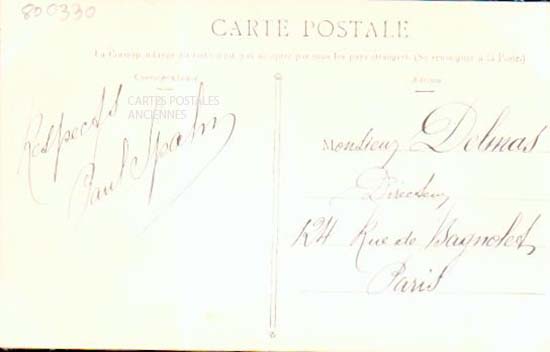 800330
CARTE POSTALE
La Correspondance au recto n'est pas acceptée par tous les pays étrangers (Se renseigner à la Poste)
Correspondance
Adresse
CARTES POSTALES
ANCIENNES
Respects
Paul Spahn
Monsieur Delmas
Directeur
124 Rue de Bagnolet
Paris